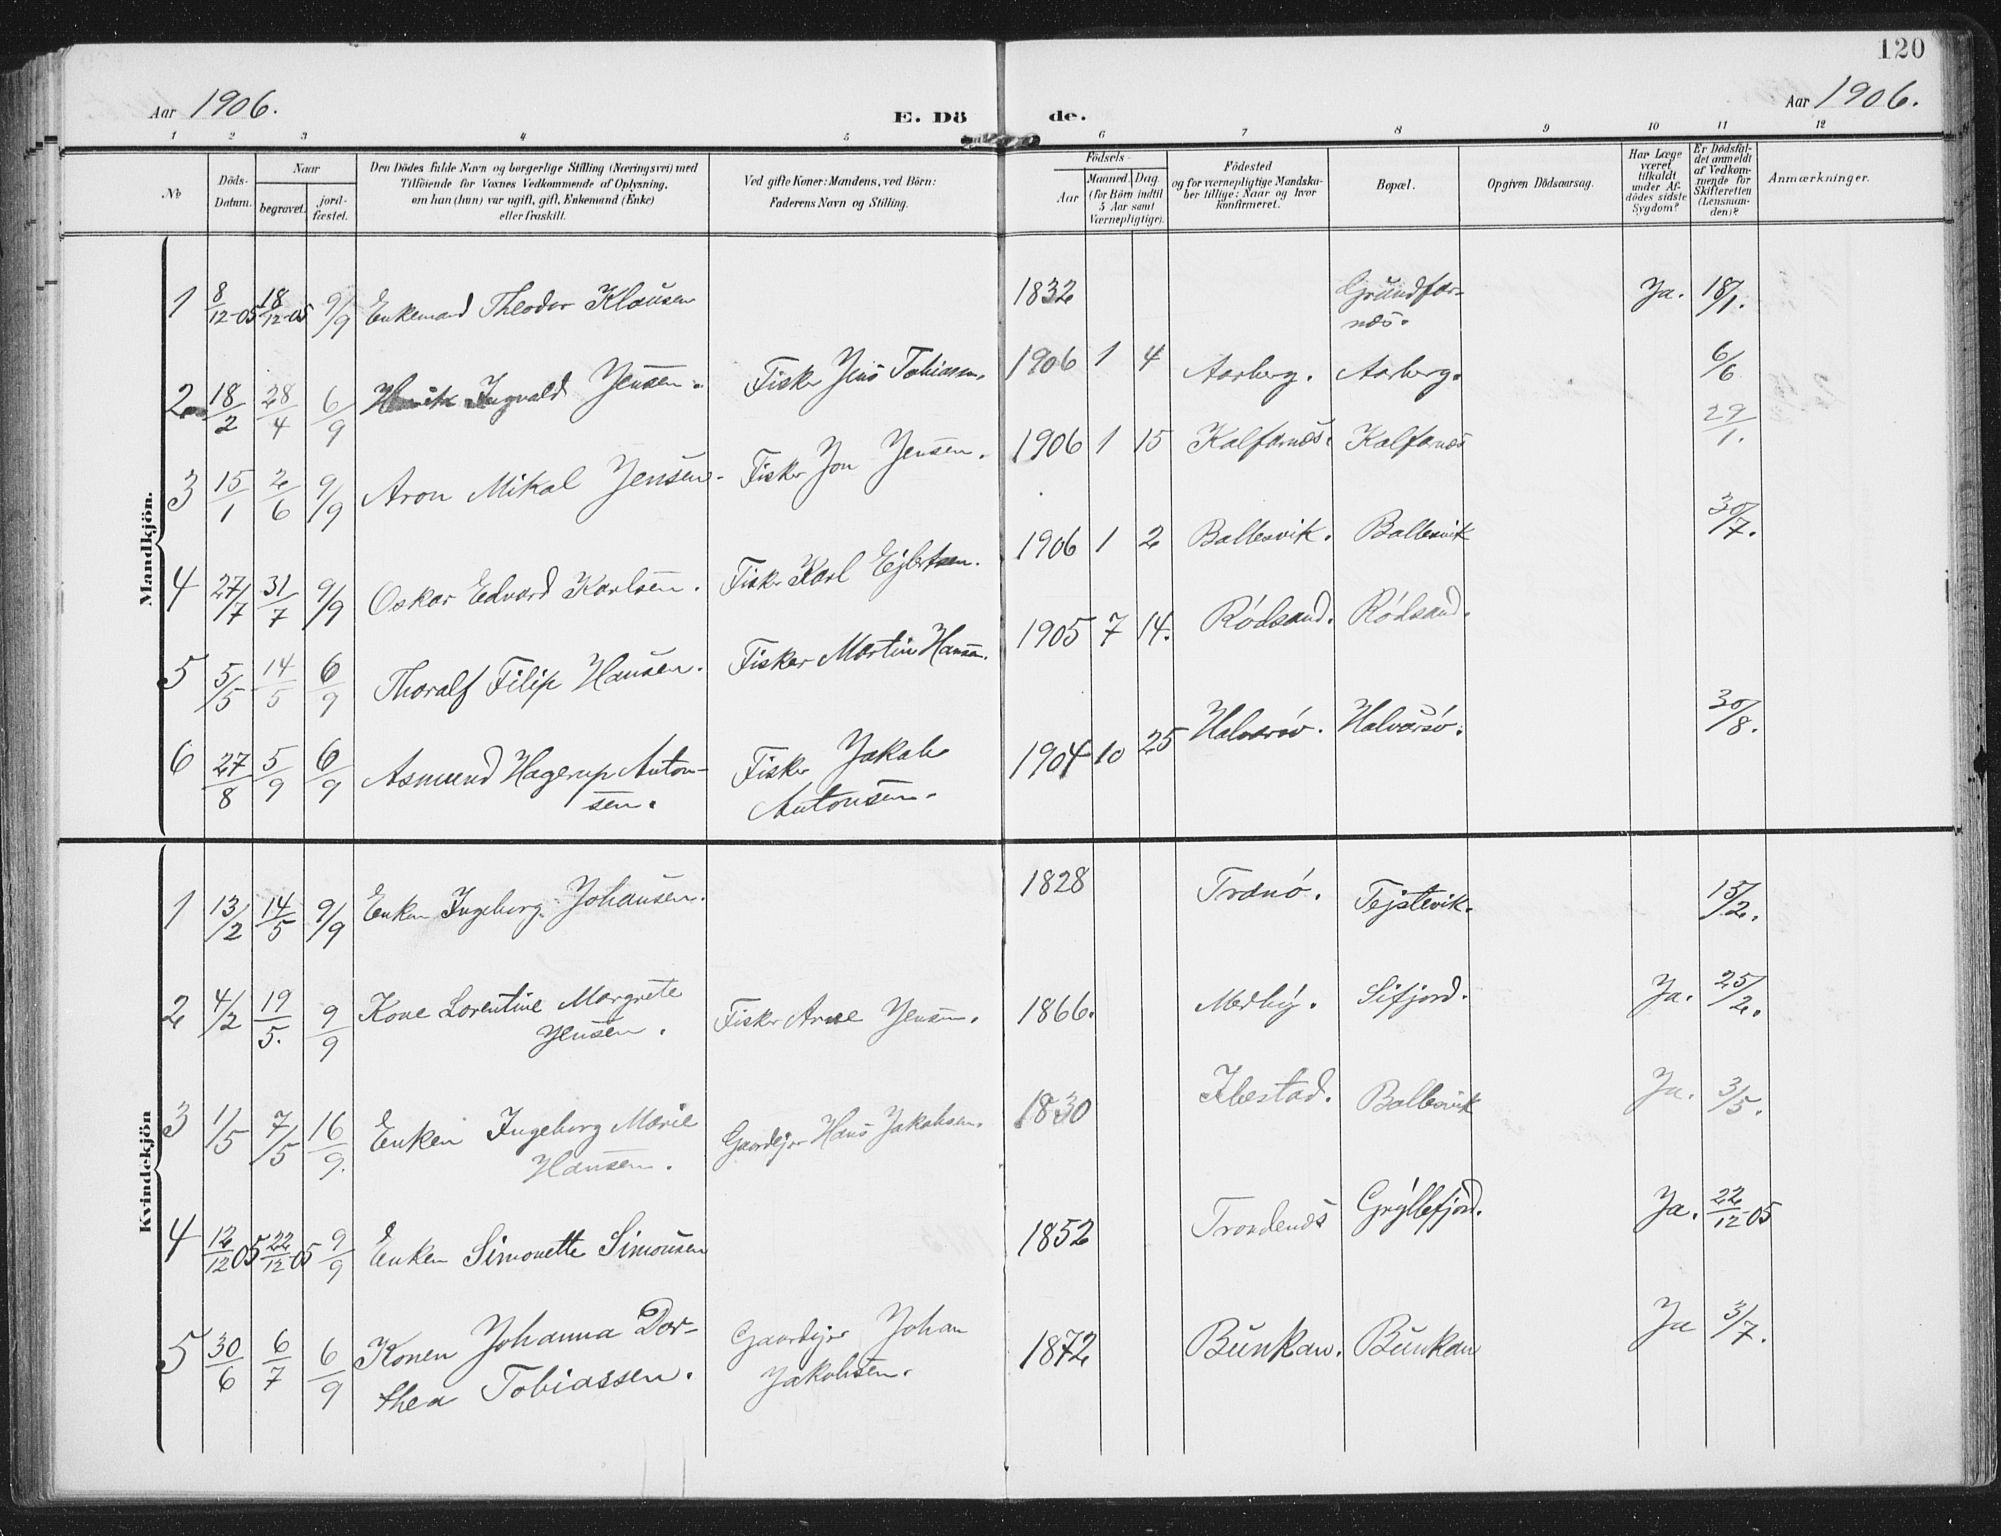 120
Aar 1906.
E. Dö de.
Aar 1906.
1 2 3 4 5 6 7 8 9 10 11 12
No
Döds-Datum.
Naar
begravet.
jord-fæstet.
Den Dödes fulde Navn og borgerlige Stilling (Næringsvei) med
Tilföiende for Voxnes Vedkommende af Oplysning,
om han (hun) var ugift, gift, Enkemand (Enke)
eller fraskilt.
Ved gifte Koner: Mandens, ved Börn:
Faderens Navn og Stilling.
Födsels-
Aar
Maaned. Dag.
(for Börn indtil
5 Aar samt
Værnepligtige).
Födested
og for værnepligtige Mandska-
ber tillige: Naar og hvor
konfirmeret.
Bopæl.
Opgiven Dödsaarsag.
Har Læge
været
tilkaldt
under Af-
dödes sidste
Sygdom?
Er Dödsfal-
det anmeldt
af Vedkom-
mende for
Skifteretten
(Lensman-
den)?
Anmærkninger.
Mandkjön.
1 8/12-05 18/12-05 9/9 Enkemand Theodor Klausen 1832 Grundfar- Ja. 18/1.
næs.
2 18/2 28/4 6/9 Henrik Ingvald Jensen. Fisker Jens Tobiassen. 1906 1 4 Aarberg. Aarberg. 6/6
3 15/1 2/6 9/9 Aron Mikal Jensen. Fisker Jon Jensen. 1906 1 15 Kalfarnes. Kalfarnes 29/1.
4 27/7 31/7 9/9 Oskar Edvard Karlsen. Fisker Karl Ejlertsen. 1906 1 2 Ballesvik. Ballesvik 30/7.
5 5/5 14/5 6/9 Thoralf Filip Hansen. Fisker Martin Hansen. 1905 7 14. Rödsand. Rödsand.
6 27/8 5/9 6/9 Asmund Hagerup Anton- Fisker Jakob 1904 10 25 Halvarsø. Halvarsø. 30/8.
sen. Antonsen.
Kvindekjön
1 13/2 14/5 9/9 Enken Ingeborg Johansen. 1828 Tranö. Tejstevik. 15/2.
2 4/2 19/5. 9/9 Kone Lorentine Margrete Fisker Arne Jensen. 1866. Medby. Sifjord. Ja. 25/2.
Jensen.
3 1/5 7/5 16/9. Enken Ingeborg Marie Gaardejer Hans Jakobsen. 1830 Ibestad. Ballesvik Ja. 3/5.
Hansen.
4 12/12 05 22/12-05 9/9 Enken Simonette Simonsen 1852 Trondenes Gryllefjord. Ja. 22/12-05
5 30/6 6/7 6/9 Konen Johanna Dor- Gaardejer Johan 1872 Bunkan. Bunkan Ja 3/7.
thea Tobiassen. Jakobsen.